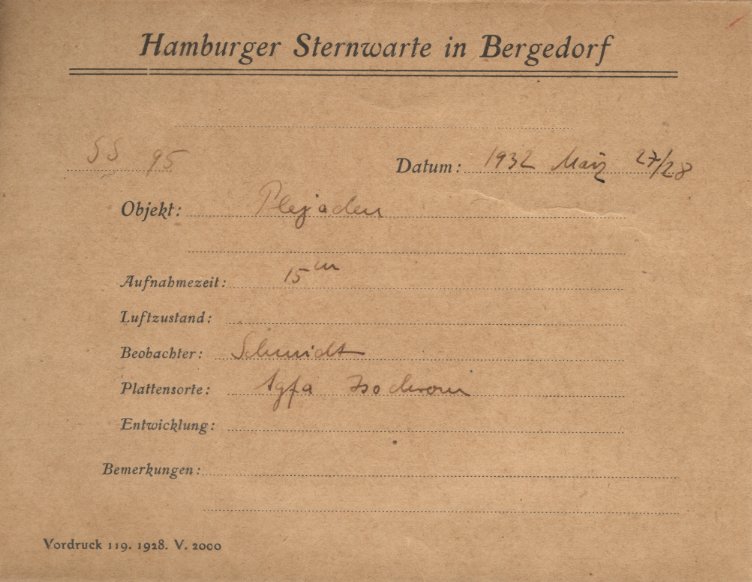 Hamburger Sternwarte in Bergedorf
SS 95
Datum: 1932 März 27/28
Objekt: Plejaden
Aufnahmezeit: 15m
Luftzustand:
Beobachter: Schmidt
Plattensorte: Agfa Isochrom
Entwicklung:
Bemerkungen:
Vordruck 119. 1928. V. 2000